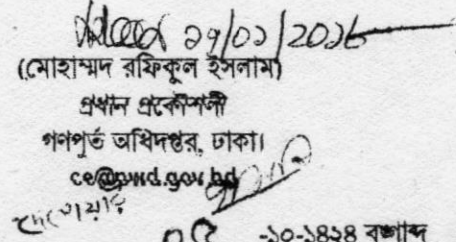 ২৭/০১/২০১৮
(মোহাম্মদ রফিকুল ইসলাম)
প্রধান প্রকৌশলী
গণপূর্ত অধিদপ্তর, ঢাকা।
ce@pwd.gov.bd
০৫ -১০-১৪২৪ বঙ্গাব্দ